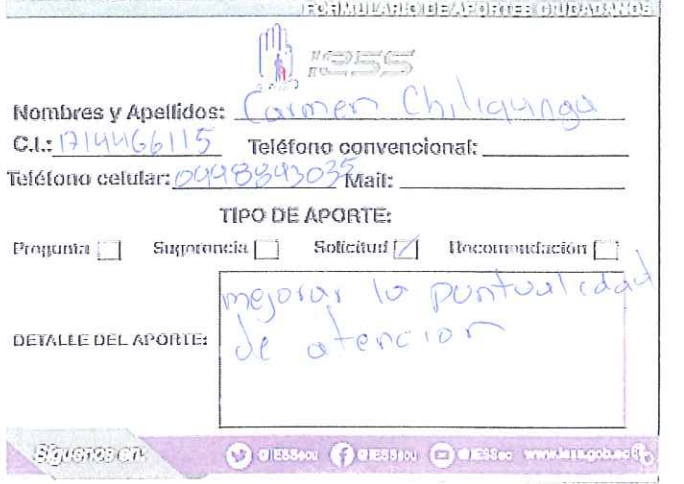 FORMULARIO DE APORTES CIUDADANOS
IESS
Nombres y Apellidos: Carmen Chiliquinga
C.I.: 1714466115 Teléfono convencional:
Teléfono celular: Mail:
TIPO DE APORTE:
Pregunta Sugerencia Solicitud Recomendación
DETALLE DEL APORTE:
mejorar la puntualidad
de atencion
Síguenos en: @IESSec www.iess.gob.ec